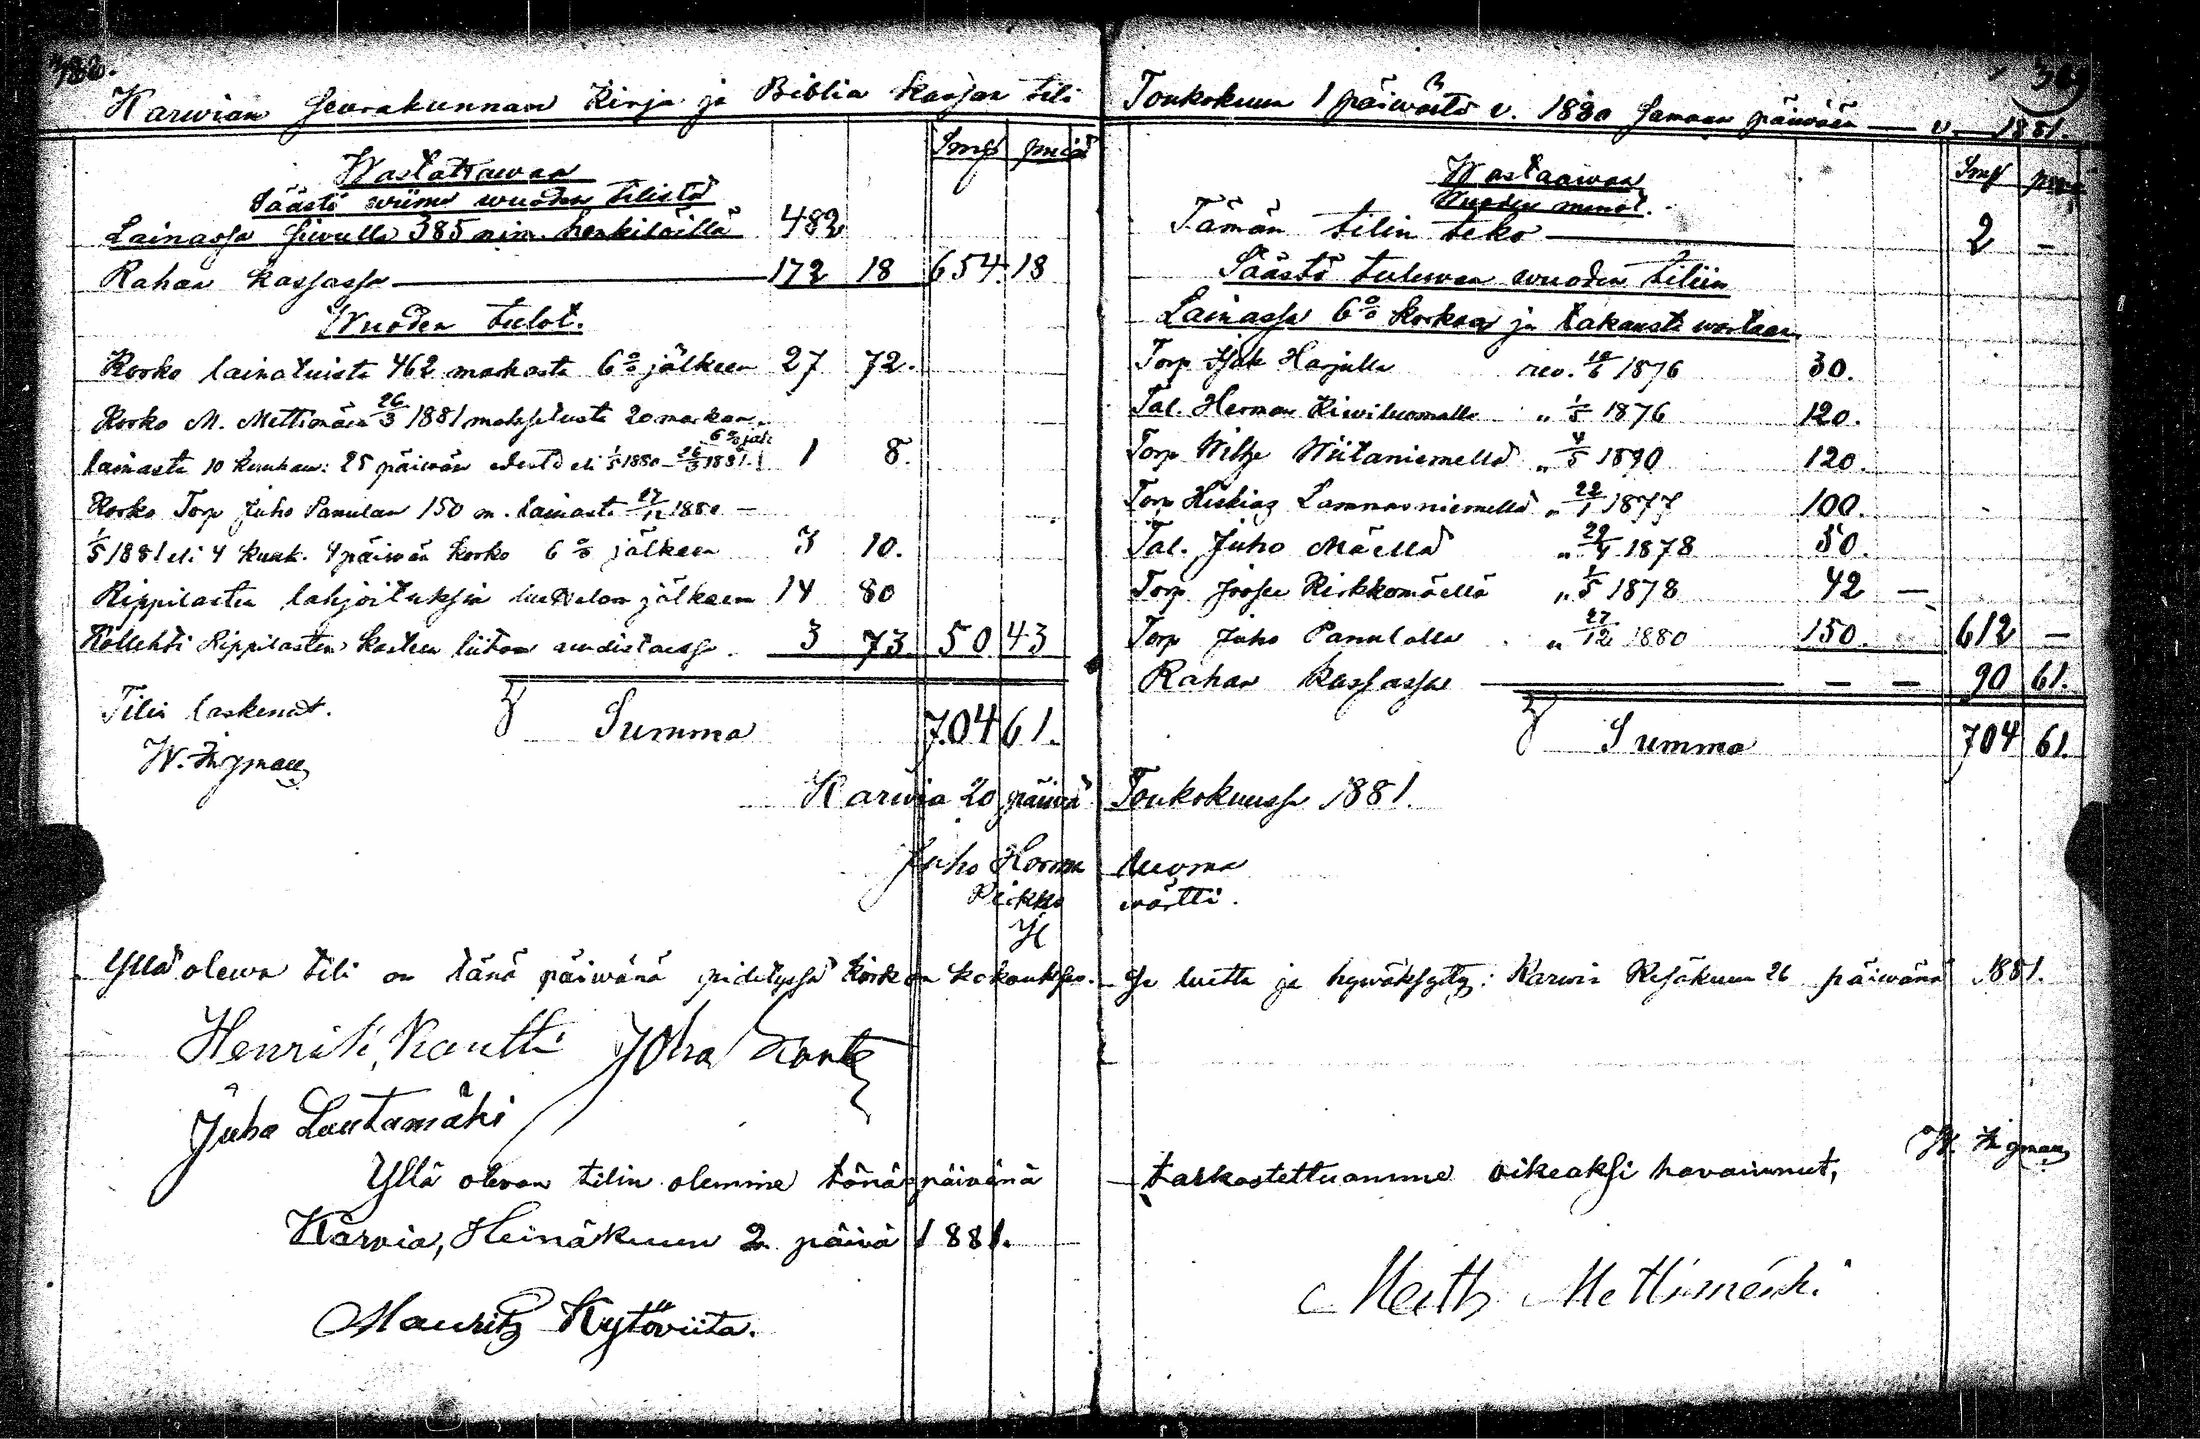 388.
Karwian Seurakunnan Kirja ja Biblia kassan tili
Smf pniä
Wastattawaa
Säästö wiime wuoden tilistä
Lainassa sivulla 385 nim. henkilöillä 482
Rahaa kassassa 172 18 654. 18
Wuoden tulot.
Korko lainatuista 462 markasta 6% jälkeen 27 72.
Korko M. Mettimäen 26/3 1881 maksetusta 20 markan
6% jälk
lainasta 10 kuukau: 25 päiwän edestä eli 1/5 1880 - 26/3 1881. 1 8.
Korko Torp Juho Panulan 150 m. lainasta 27/12 1880 -
1/5 1881 eli 4 kuuk. 4 päiwän korko 6% jälkeen 3 10.
Rippilasten lahjoituksia luettelon jälkeen 14 80
Kollehti Rippilasten kasteen liiton uudistaessa. 3 73. 50 43
Tilin laskenut.
Summa 704 61.
Toukokuun 1 päiwästä v. 1880 Samaan päiwään v. 1881.
Smf
Wastaawaa
Wuoden menot.
Tämän tilin teko 2 -
Säästö tulewan wuoden tiliin
Lainassa 6% korkoa ja takausta wastaan
Torp Isak Harjulla rev. 1876 30.
Tal. Herman Kiwiluomalla " 1/5 1876 120.
Torp Wiitaniemellä " 4/5 120.
Torp Hiskias Lammasniemellä " 22/1 1877 100.
Tal. Juho Mäellä " 29/4 1878 50.
Torp Josee Kirkkomäellä " 1/5 1878 42 -
Torp Juho Panulalla " 27/12 1880 150. 612 -
Rahaa kassassa - - 90 61.
Summa 704 61.
Karwia 20 päiwä Toukokuussa 1881.
Juho Hormaluoma
Kirkkowärtti.
Yllä olewa tili on tänä päiwänä pidetyssä kirkon kokouksessa luettu ja hywäksytty: Karwia Kesäkuun 26 päiwänä 1881.
Henrik Kautti Joha
Juha Lautamäki
Yllä olevan tilin olemme tänä päivänä tarkastettuamme oikeaksi havainnut,
Karvia, Heinäkuun 2 päivä 1881.
Mauritz Kytöviita. Matts Mettimäki